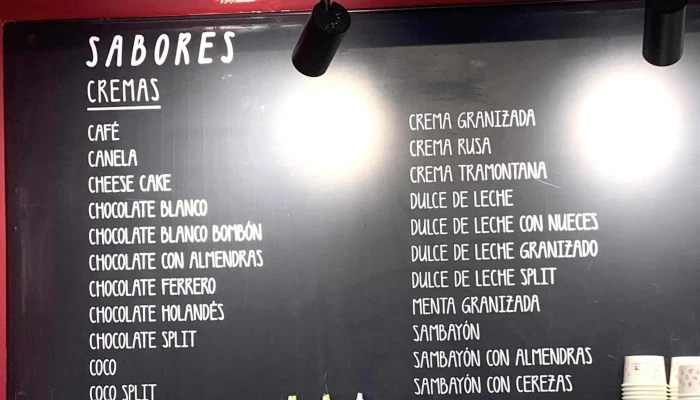 SABORES
CREMAS
CAFÉ
CANELA
CHEESE CAKE
CHOCOLATE BLANCO
CHOCOLATE BLANCO BOMBÓN
CHOCOLATE CON ALMENDRAS
CHOCOLATE FERRERO
CHOCOLATE HOLANDÉS
CHOCOLATE SPLIT
COCO
COCO SPLIT
CREMA GRANIZADA
CREMA RUSA
CREMA TRAMONTANA
DULCE DE LECHE
DULCE DE LECHE CON NUECES
DULCE DE LECHE GRANIZADO
DULCE DE LECHE SPLIT
MENTA GRANIZADA
SAMBAYÓN
SAMBAYÓN CON ALMENDRAS
SAMBAYÓN CON CEREZAS